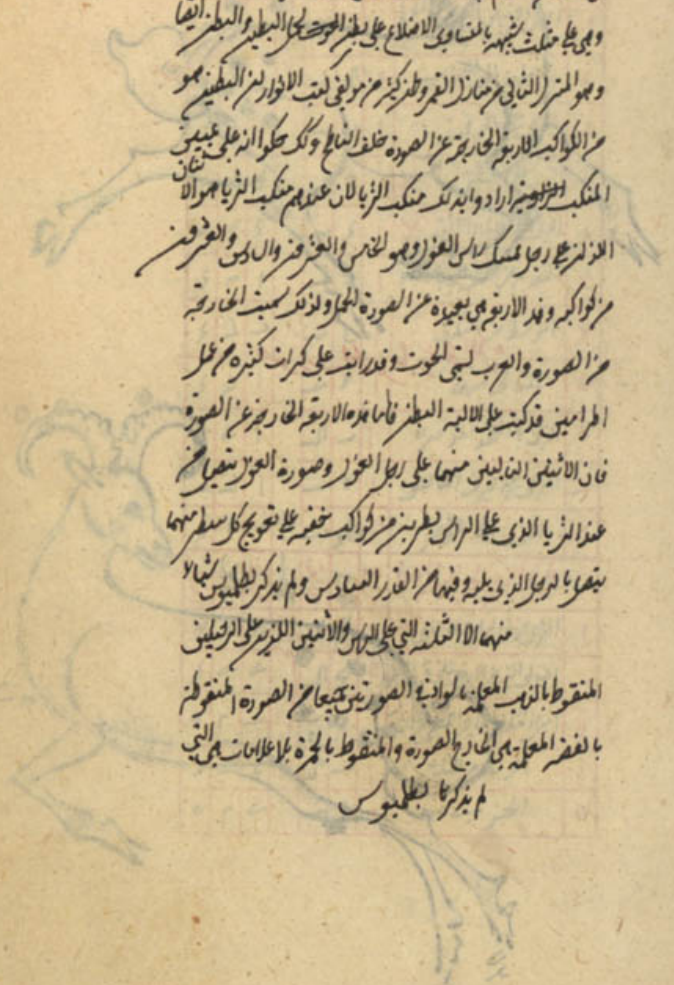 وهي على مثلث شبيهة بالمتساوى الاضلاع على بطن الحوت لحمل البطين والبطن ايضا
وهو المنزل الثانى من منازل القمر وظن كثير من مولفى كتب الانوار ان البطين هو
من الكواكب الاربعة الخارجة عن الصورة خلف الناطح ولك حكوا انه على
المنكب اراد وابذلك منكب الثريا لان عندهم منكب الثريا هو الاثنان
اللذان على رجل ممسك راس الغول وهو الخامس والعشرون والسادس والعشرون
من كواكبه وهذه الاربعة هى بعيدة عن الصورة الحمل ولذلك سميت الخارجة
من الصورة والعرب تسمى الحوت وقد رايت على كرات كثيرة من عمل
الحرانيين قد كتب على الالية البطن فأما هذه الاربعة الخارجة عن الصورة
فان الاثنين التاليين منهما على رجل الغول وصورة الغول يتصل من
عند الثريا الذى على الراس بطريين من كواكب خفية على تعويج كل سطر منهما
يتصل بالرجل الذى يليه وفيها من القدر السادس ولم يذكر بطلميوس شيا
منهما الا الثلثة التى على الراس والاثنين اللذين على الرجلين
المنقوط بالذهب المعلمة بالوانه الصورتين جميعا من الصورة المنقوطة
بالفضة المعلمة هى الخارج الصورة والمنقوط بالحمرة بلا علامات هى التى
لم يذكرها بطلميوس